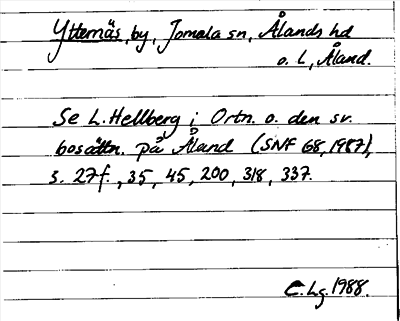 Ytternäs, by, Jomala sn, Ålands hd
o. L, Åland.
Se L. Hellberg i Ortn. o. den sv.
bosättn. på Åland (SNF 68, 1987),
s. 27f., 35, 45, 200, 318, 337.
C. Lg. 1988.